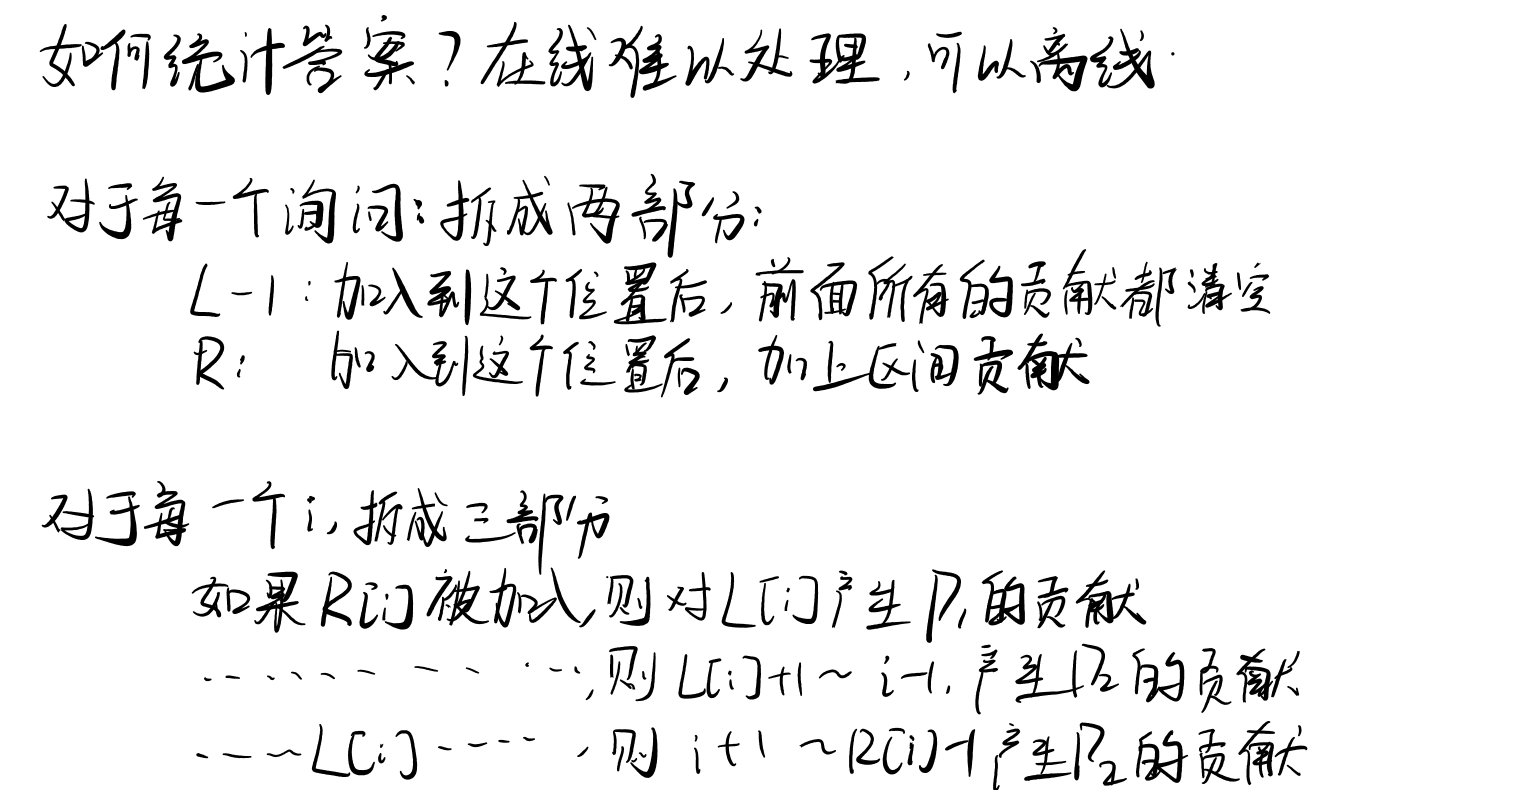 如何统计答案？在线难以处理，可以离线.
对于每一个询问：拆成两部分：
L-1：加入到这个位置后，前面所有的贡献都清空
R： 加入到这个位置后，加上区间贡献
对于每一个i，拆成三部分
如果R[i]被加入，则对L[i]产生P1的贡献
...........，则L[i]+1～i-1，产生P2的贡献
....L[i]....，则i+1～R[i]-1产生P2的贡献